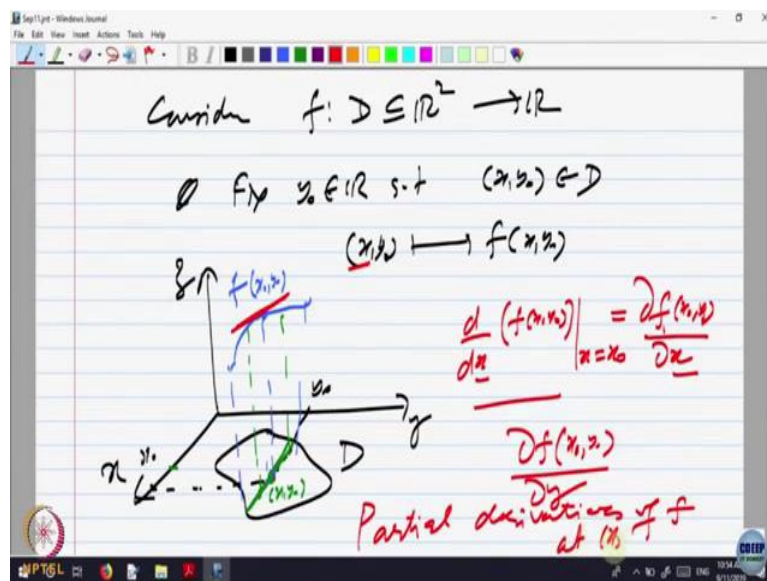 Sep11.jnt - Windows Journal
File Edit View Insert Actions Tools Help
B I
Consider f: D ⊆ ℝ² → ℝ
Fix y₀ ∈ ℝ s.t (x, y₀) ∈ D
(x, y₀) ⟼ f(x, y₀)
z
f(x₀, y₀)
d/dx (f(x, y₀))|x=x₀ = ∂f(x₀, y₀)/∂x
y₀
y
x
x₀
D
(x₀, y₀)
∂f(x₀, y₀)/∂y
Partial derivatives of f
at (x₀
NPTEL
CDEEP
ENG
10:54 AM
9/11/2019